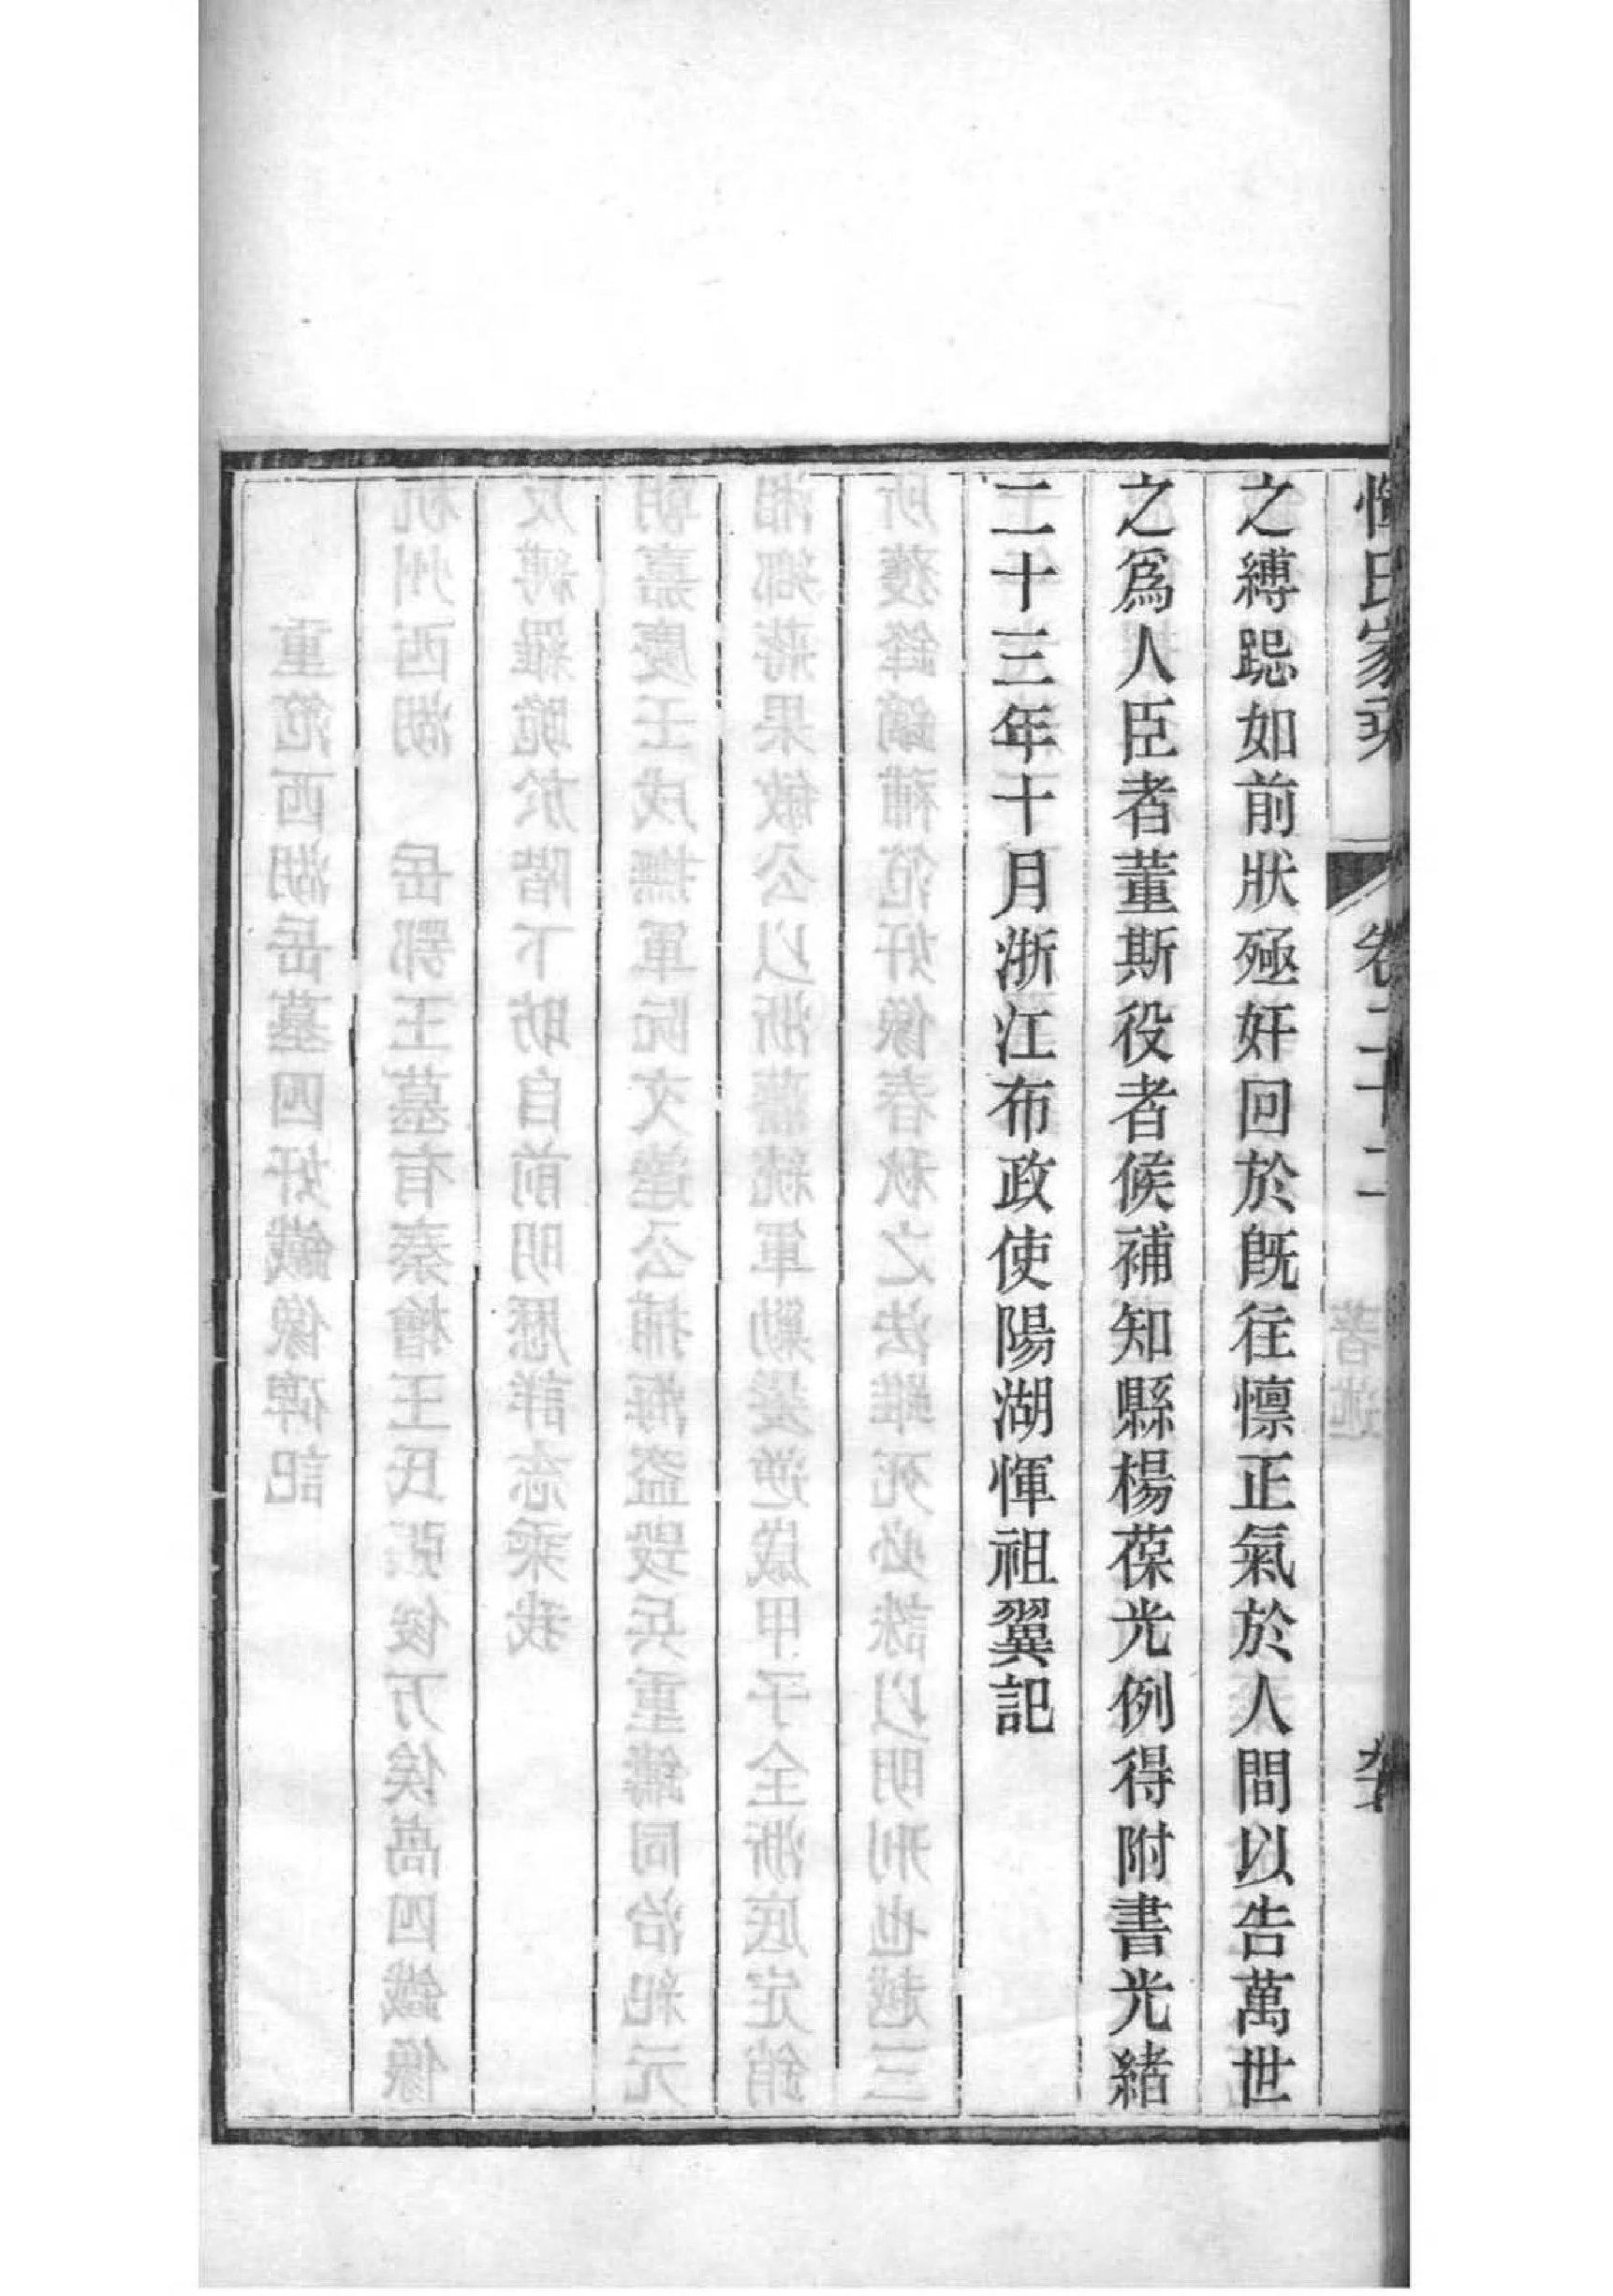 惲氏家乘 卷二十二
之縛跽如前狀殛奸回於旣往懍正氣於人間以告萬世
之爲人臣者董斯役者候補知縣楊葆光例得附書光緒
二十三年十月浙江布政使陽湖惲祖翼記